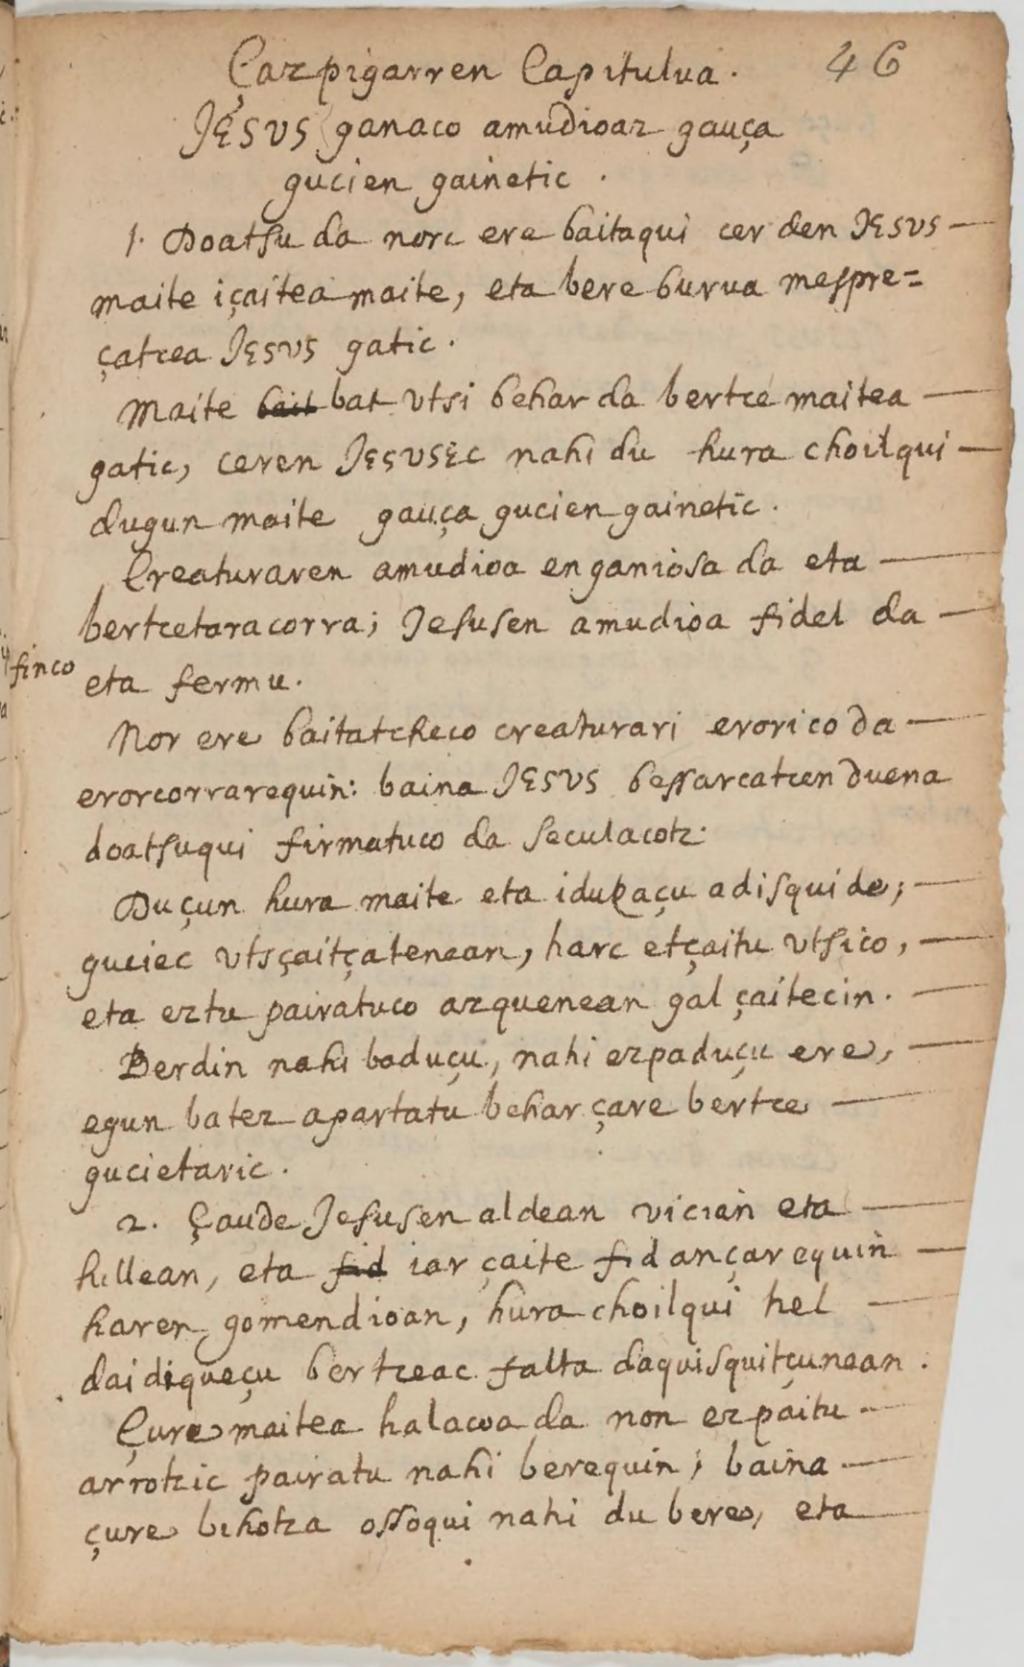 Çazpigarren Capitulua. 46
JESUS ganaco amudioaz gauça
gucien gainetic.
1. Doatsu da norc ere baitaqui cer den JESUS —
maite içaitea maite, eta bere burua mespre=
çatcea JESUS gatic.
Maite bait bat vtsi behar da bertce maitea —
gatic, ceren JESUSEC nahi du hura choilqui —
dugun maite gauça gucien gainetic.
Creaturaren amudioa enganiosa da eta —
bertcetaracorra; Jesusen amudioa fidel da —
finco eta fermu.
Nor ere baitatcheco creaturari eroricoda —
erorcorrarequin: baina JESUS bessarcatcen duena
doatsuqui firmatuco da seculacotz.
Duçun hura maite eta idukaçu adisquide; —
guciec vtsçaitçatenean, harc etçaitu vtsico, —
eta eztu pairatuco azquenean gal çaitecin. —
Berdin nahi baduçu, nahi ezpaduçu ere, —
egun batez apartatu behar çare bertce —
gucietaric.
2. Çaude Jesusen aldean vician eta —
hillean, eta fid iar çaite fidançarequin —
haren gomendioan, hura choilqui hel —
daidiqueçu bertceac falta daquisquitçunean.
Çure maitea halacoa da non ezpaitu —
arrotzic pairatu nahi berequin; baina —
çure bihotza ossoqui nahi du bere, eta —